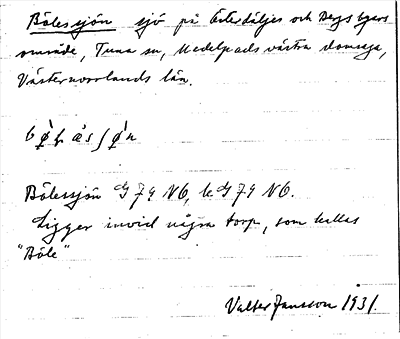 Bölessjön sjö på Österdäljes och Bergs byars
område, Tuna sn, Medelpads västra domsaga,
Västernorrlands län.
Bölessjön G 79 NO, k G 79 NO.
Ligger invid några torp, som kallas
"Böle"
Valter Jansson 1931.